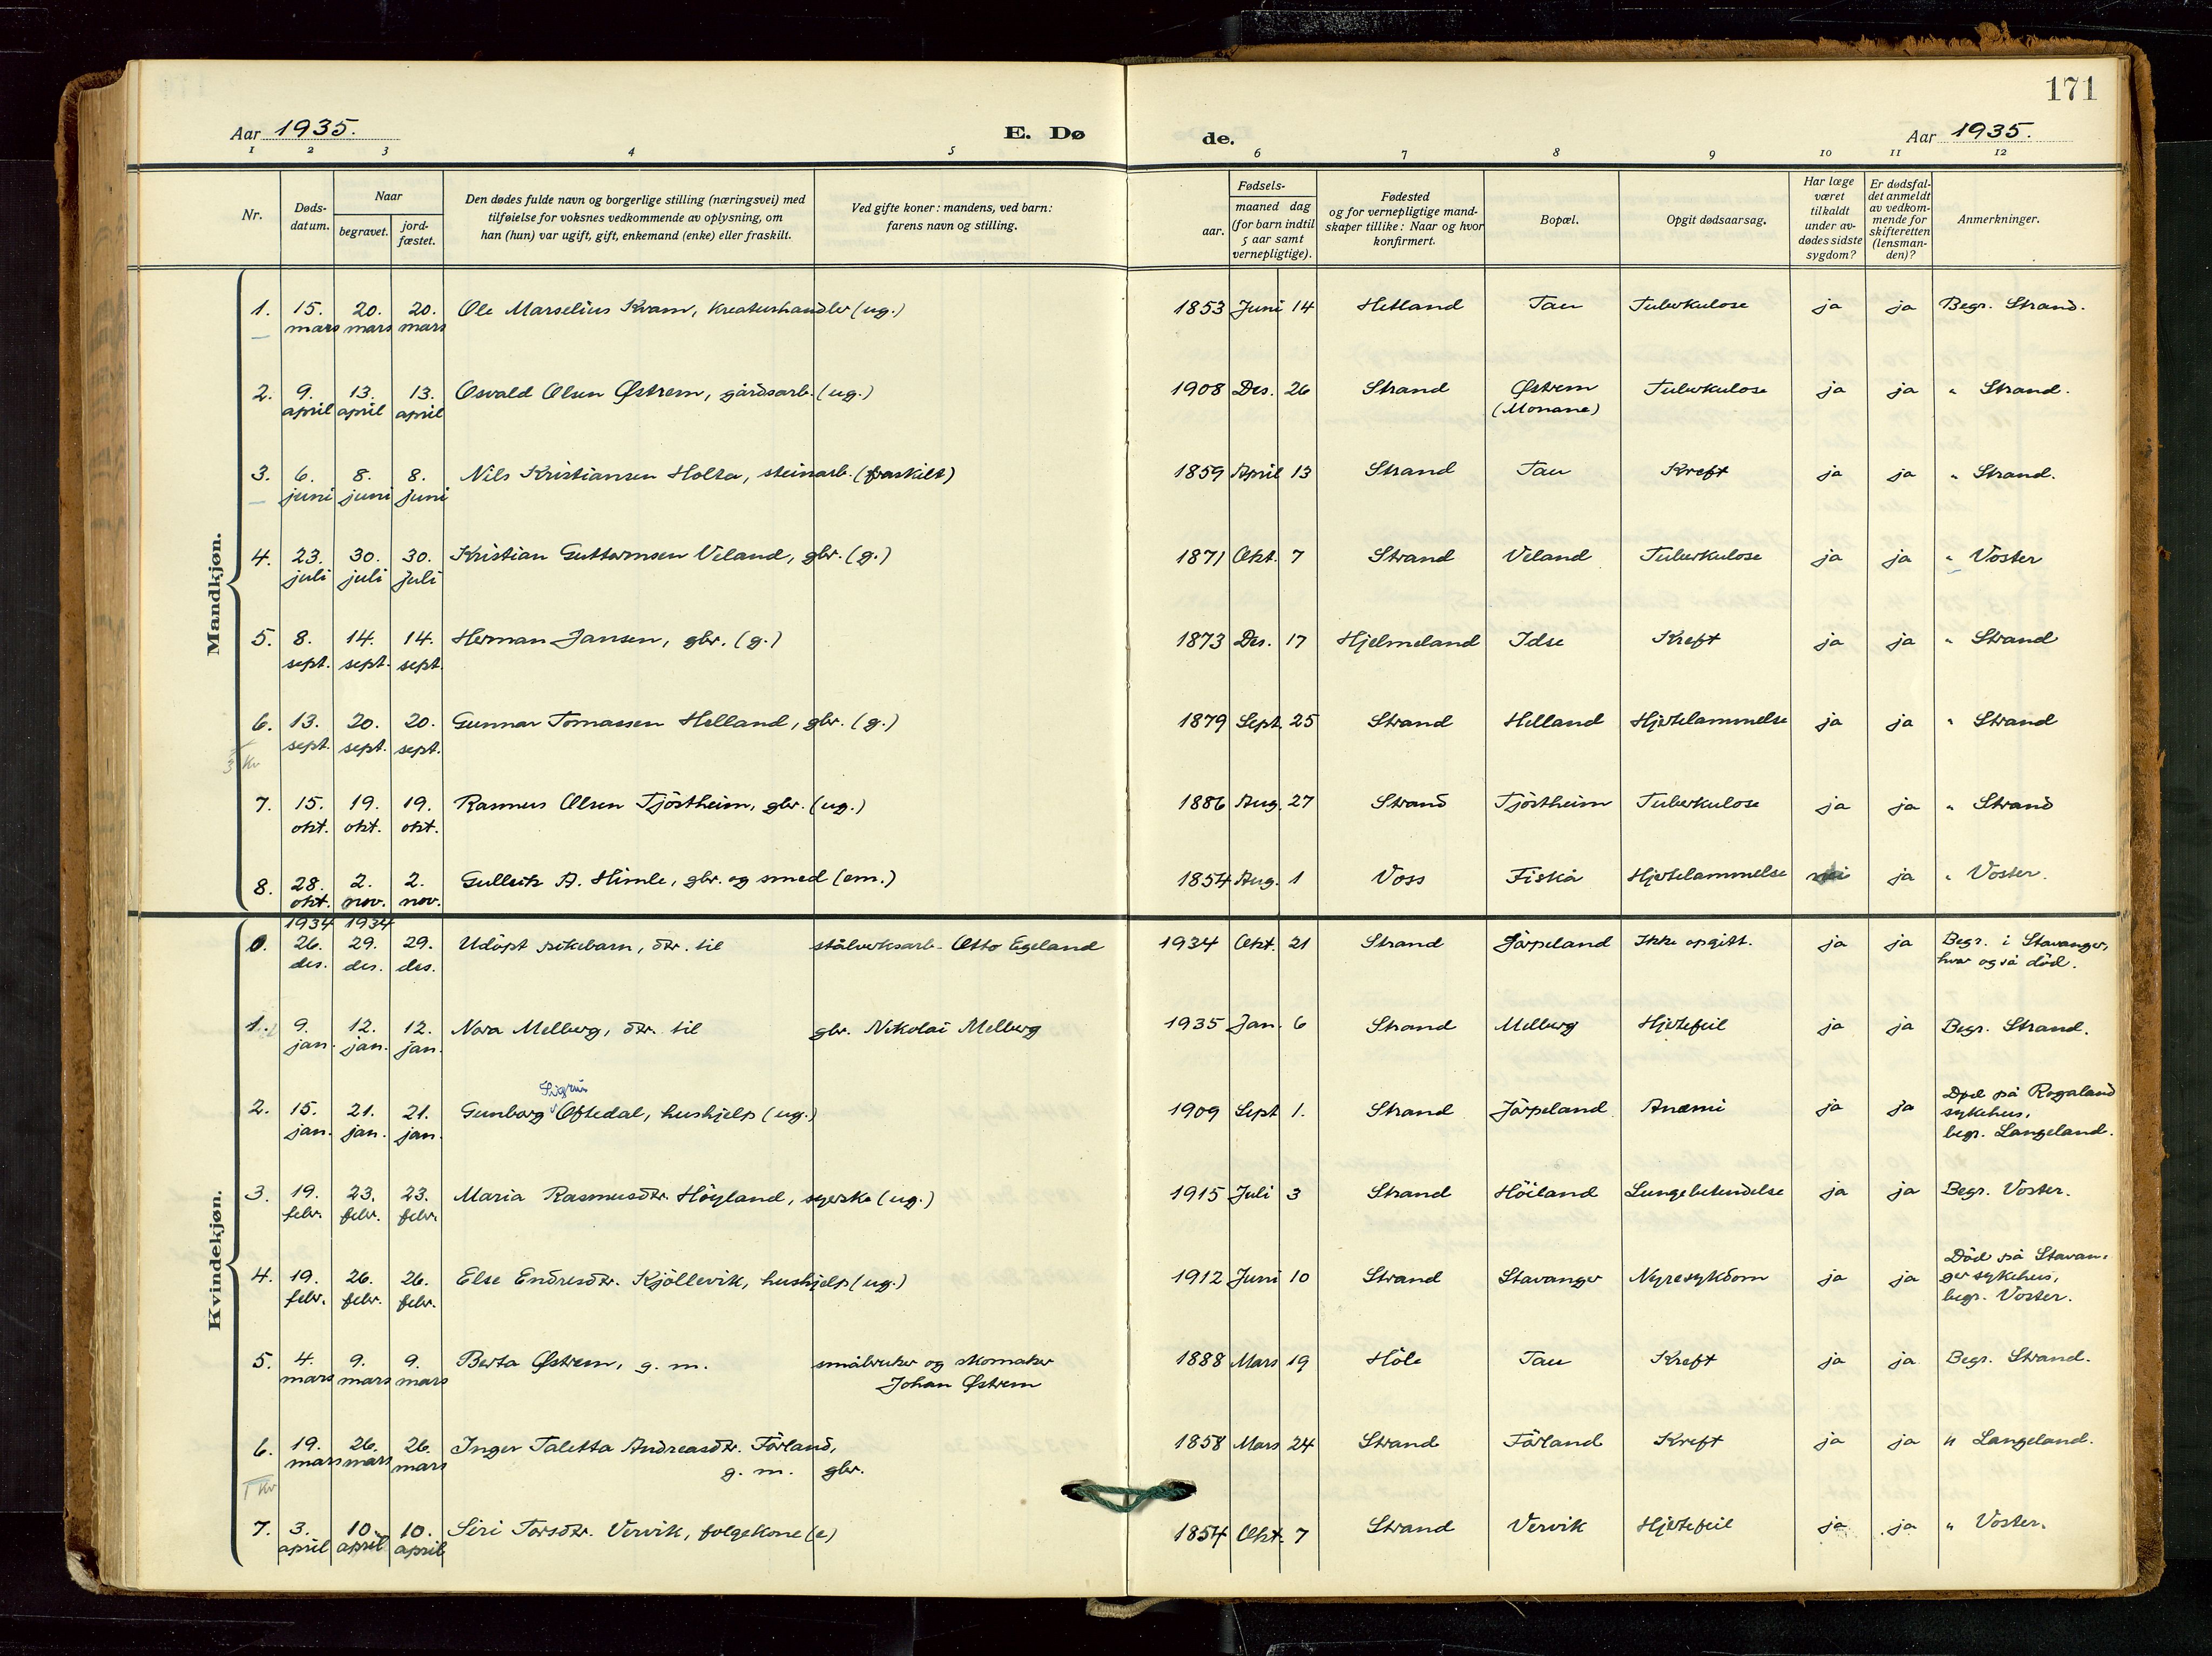 171
Aar 1935. E. Dø de. Aar 1935.
1 2 3 4 5 6 7 8 9 10 11 12
Nr. Døds-datum. Naar begravet. jord-fæstet. Den dødes fulde navn og borgerlige stilling (næringsvei) med tilføielse for voksnes vedkommende av oplysning, om han (hun) var ugift, gift, enkemand (enke) eller fraskilt. Ved gifte koner: mandens, ved barn: farens navn og stilling. Fødsels- aar. maaned dag (for barn indtil 5 aar samt vernepligtige). Fødested og for vernepligtige mandskaper tillike: Naar og hvor konfirmert. Bopæl. Opgit dødsaarsag. Har læge været tilkaldt under av-dødes sidste sygdom? Er dødsfal-det anmeldt av vedkom-mende for skifteretten (lensman-den)? Anmerkninger.
Mandkjøn.
1. 15. mars 20. mars 20. mars Ole Marselius Kvam, kreaturhandler (ug.) 1853 Juni 14 Hetland Tau Tuberkulose ja ja Begr. Strand.
2. 9. april 13. april 13. april Osvald Olsen Østrem, gårdsarb. (ug.) 1908 Des. 26 Strand Østrem (Monane) Tuberkulose ja ja " Strand.
3. 6. juni 8. juni 8. juni Nils Kristiansen Holta, steinarb. (fraskilt) 1859 April 13 Strand Tau Kreft ja ja " Strand.
4. 23. juli 30. juli 30. juli Kristian Guttormsen Veland, gbr. (g.) 1871 Okt. 7 Strand Veland Tuberkulose ja ja " Voster
5. 8. sept. 14. sept. 14. sept. Herman Jansen, gbr. (g.) 1873 Des. 17 Hjelmeland Idse Kreft ja ja " Strand
6. 13. sept. 20. sept. 20. sept. Gunnar Tomassen Helland, gbr. (g.) 1879 Sept. 25 Strand Helland Hjertelammelse ja ja " Strand
3 Kv
7. 15. okt. 19. okt. 19. okt. Rasmus Olsen Tjöstheim, gbr. (ug.) 1886 Aug. 27 Strand Tjöstheim Tuberkulose ja ja " Strand
8. 28. okt. 2. nov. 2. nov. Gulleik A. Himle, gbr. og smed (em.) 1854 Aug. 1 Voss Fiskå Hjertelammelse nei ja " Voster.
Kvindekjøn.
1934 1934
0. 26. des. 29. des. 29. des. Udöpt pikebarn, dtr. til stålverksarb. Otto Egeland 1934 Okt. 21 Strand Jörpeland Ikke opgitt. ja ja Begr. i Stavanger, hvor også död.
1. 9. jan. 12. jan. 12. jan. Nora Melberg, dtr. til gbr. Nikolai Melberg 1935 Jan. 6 Strand Melberg Hjertefeil ja ja Begr. Strand.
Sigrun
2. 15. jan. 21. jan. 21. jan. Gunborg Oftedal, hushjelp (ug.) 1909 Sept 1. Strand Jörpeland Anæmi ja ja Död på Rogaland sykehus, begr. Langeland.
3. 19. febr. 23. febr. 23. febr. Maria Rasmusdtr. Höyland, syerske (ug.) 1915 Juli 3 Strand Höiland Lungebetendelse ja ja Begr. Voster.
4. 19. febr. 26. febr. 26. febr. Else Endresdtr. Kjöllevik, hushjelp (ug.) 1912 Juni 10 Strand Stavanger Nyresykdom ja ja Död på Stavanger sykehus, begr. Voster.
5. 4. mars 9. mars 9. mars Berta Østrem, g. m. småbruker og skomaker Johan Østrem 1888 Mars 19 Höle Tau Kreft ja ja Begr. Strand.
6. 19. mars 26. mars 26. mars Inger Taletta Andreasdtr. Förland, g. m. gbr. 1858 Mars 24 Strand Förland Kreft ja ja " Langeland.
1 Kv
7. 3. april 10. april 10. april Siri Torsdtr. Vervik, folgekone (e) 1854 Okt. 7 Strand Vervik Hjertefeil ja ja " Voster.